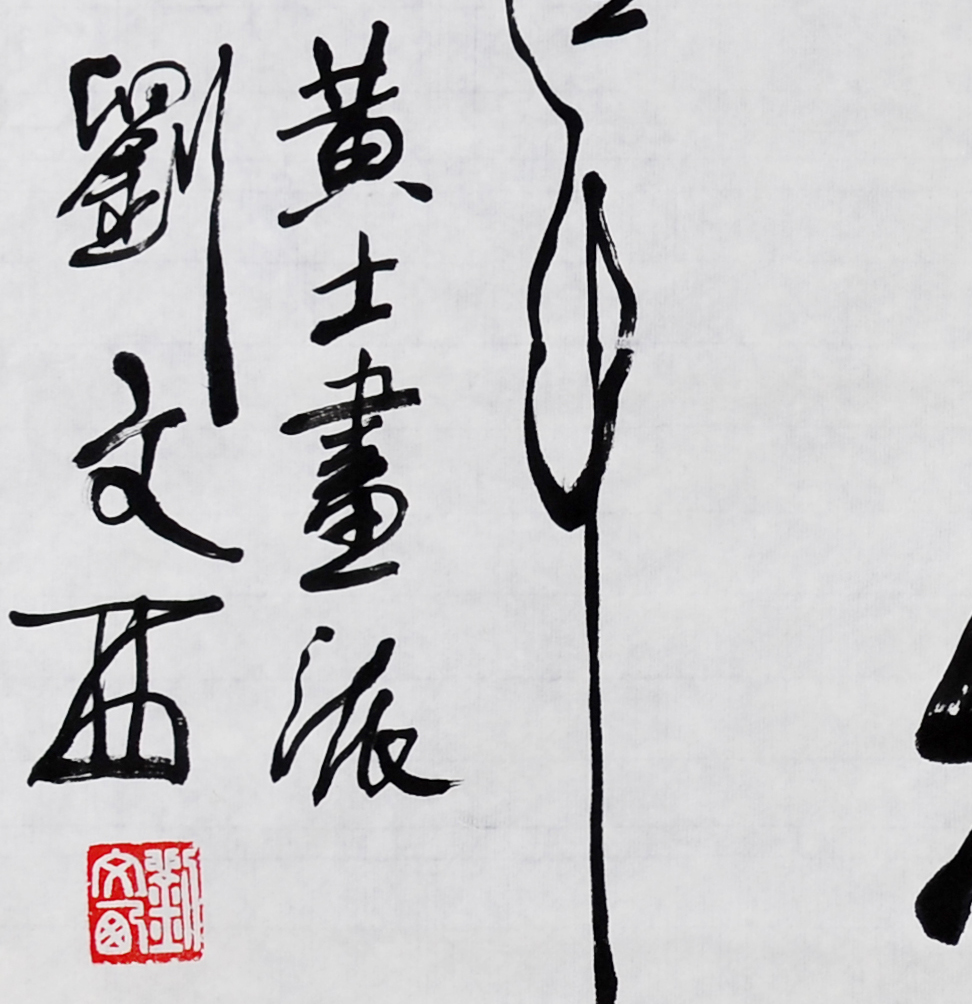 黄土畫派
劉文西
劉文西